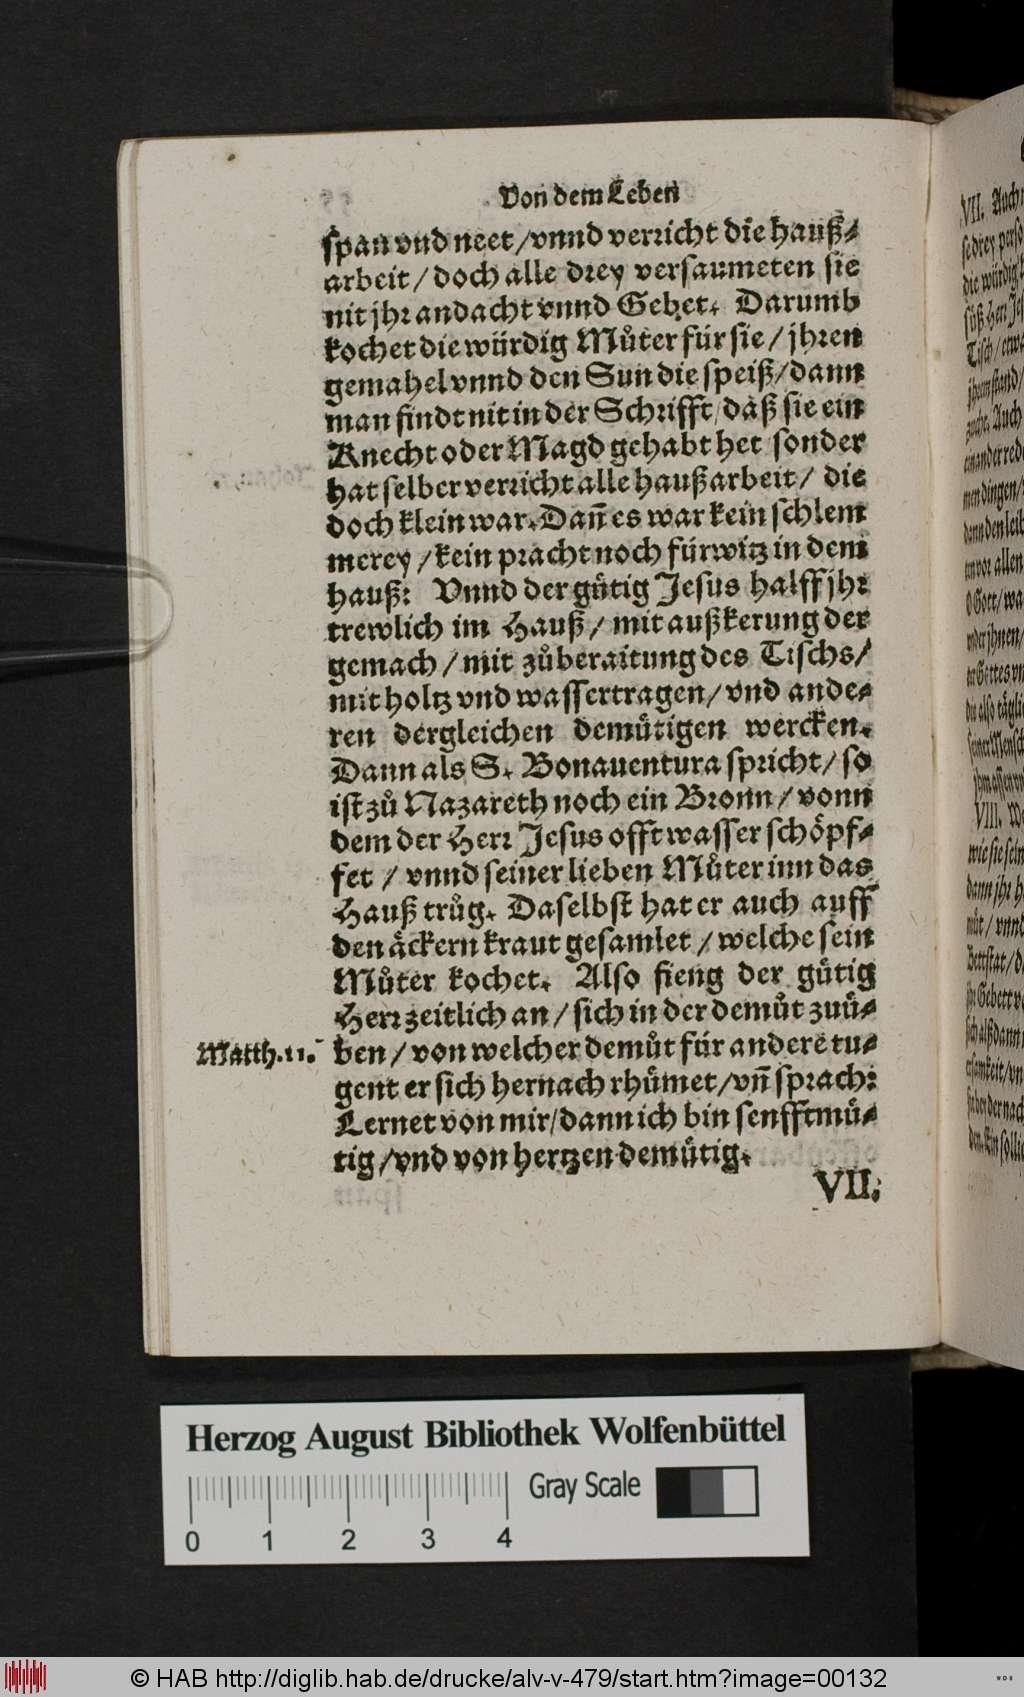 Von dem Leben
span vnd neet / vnnd verricht die hauß-
arbeit / doch alle drey versaumeten sie
nit jhr andacht vnnd Gebet. Darumb
kochet die würdig Můter für sie / jhren
gemahel vnnd den Sun die speiß / dann
man findt nit in der Schrifft / daß sie ein
Knecht oder Magd gehabt het sonder
hat selber verricht alle haußarbeit / die
doch klein war. Dañ es war kein schlem
merey / kein pracht noch fürwitz in dem
hauß: Vnnd der gütig Jesus halff jhr
trewlich im Hauß / mit außkerung der
gemach / mit zůberaitung des Tischs /
mit holtz vnd wassertragen / vnd ande-
ren dergleichen demütigen wercken.
Dann als S. Bonauentura spricht / so
ist zů Nazareth noch ein Bronn / vonn
dem der Herr Jesus offt wasser schöpf-
fet / vnnd seiner lieben Můter inn das
Hauß trůg. Daselbst hat er auch auff
den äckern kraut gesamlet / welche sein
Můter kochet. Also fieng der gütig
Herr zeitlich an / sich in der demůt zuü-
Matth.11. ben / von welcher demůt für andere tu-
gent er sich hernach rhümet / vñ sprach:
Lernet von mir / dann ich bin senfftmü-
tig / vnd von hertzen demütig.
VII.
VII. Auch
se drey perso
die würdig
süß Herr Jes
Tisch / etwa
einander rede
men dingen /
dann den leib
vor allen
O Gott / wa
Gottes vn
die also tägli
seiner Mensch
VIII. W
wie sie sein
dann jhr h
müt / vnnd
Bettstat / d
Gebett v
sich alßdann
Herzog August Bibliothek Wolfenbüttel
0 1 2 3 4
Gray Scale
© HAB http://diglib.hab.de/drucke/alv-v-479/start.htm?image=00132